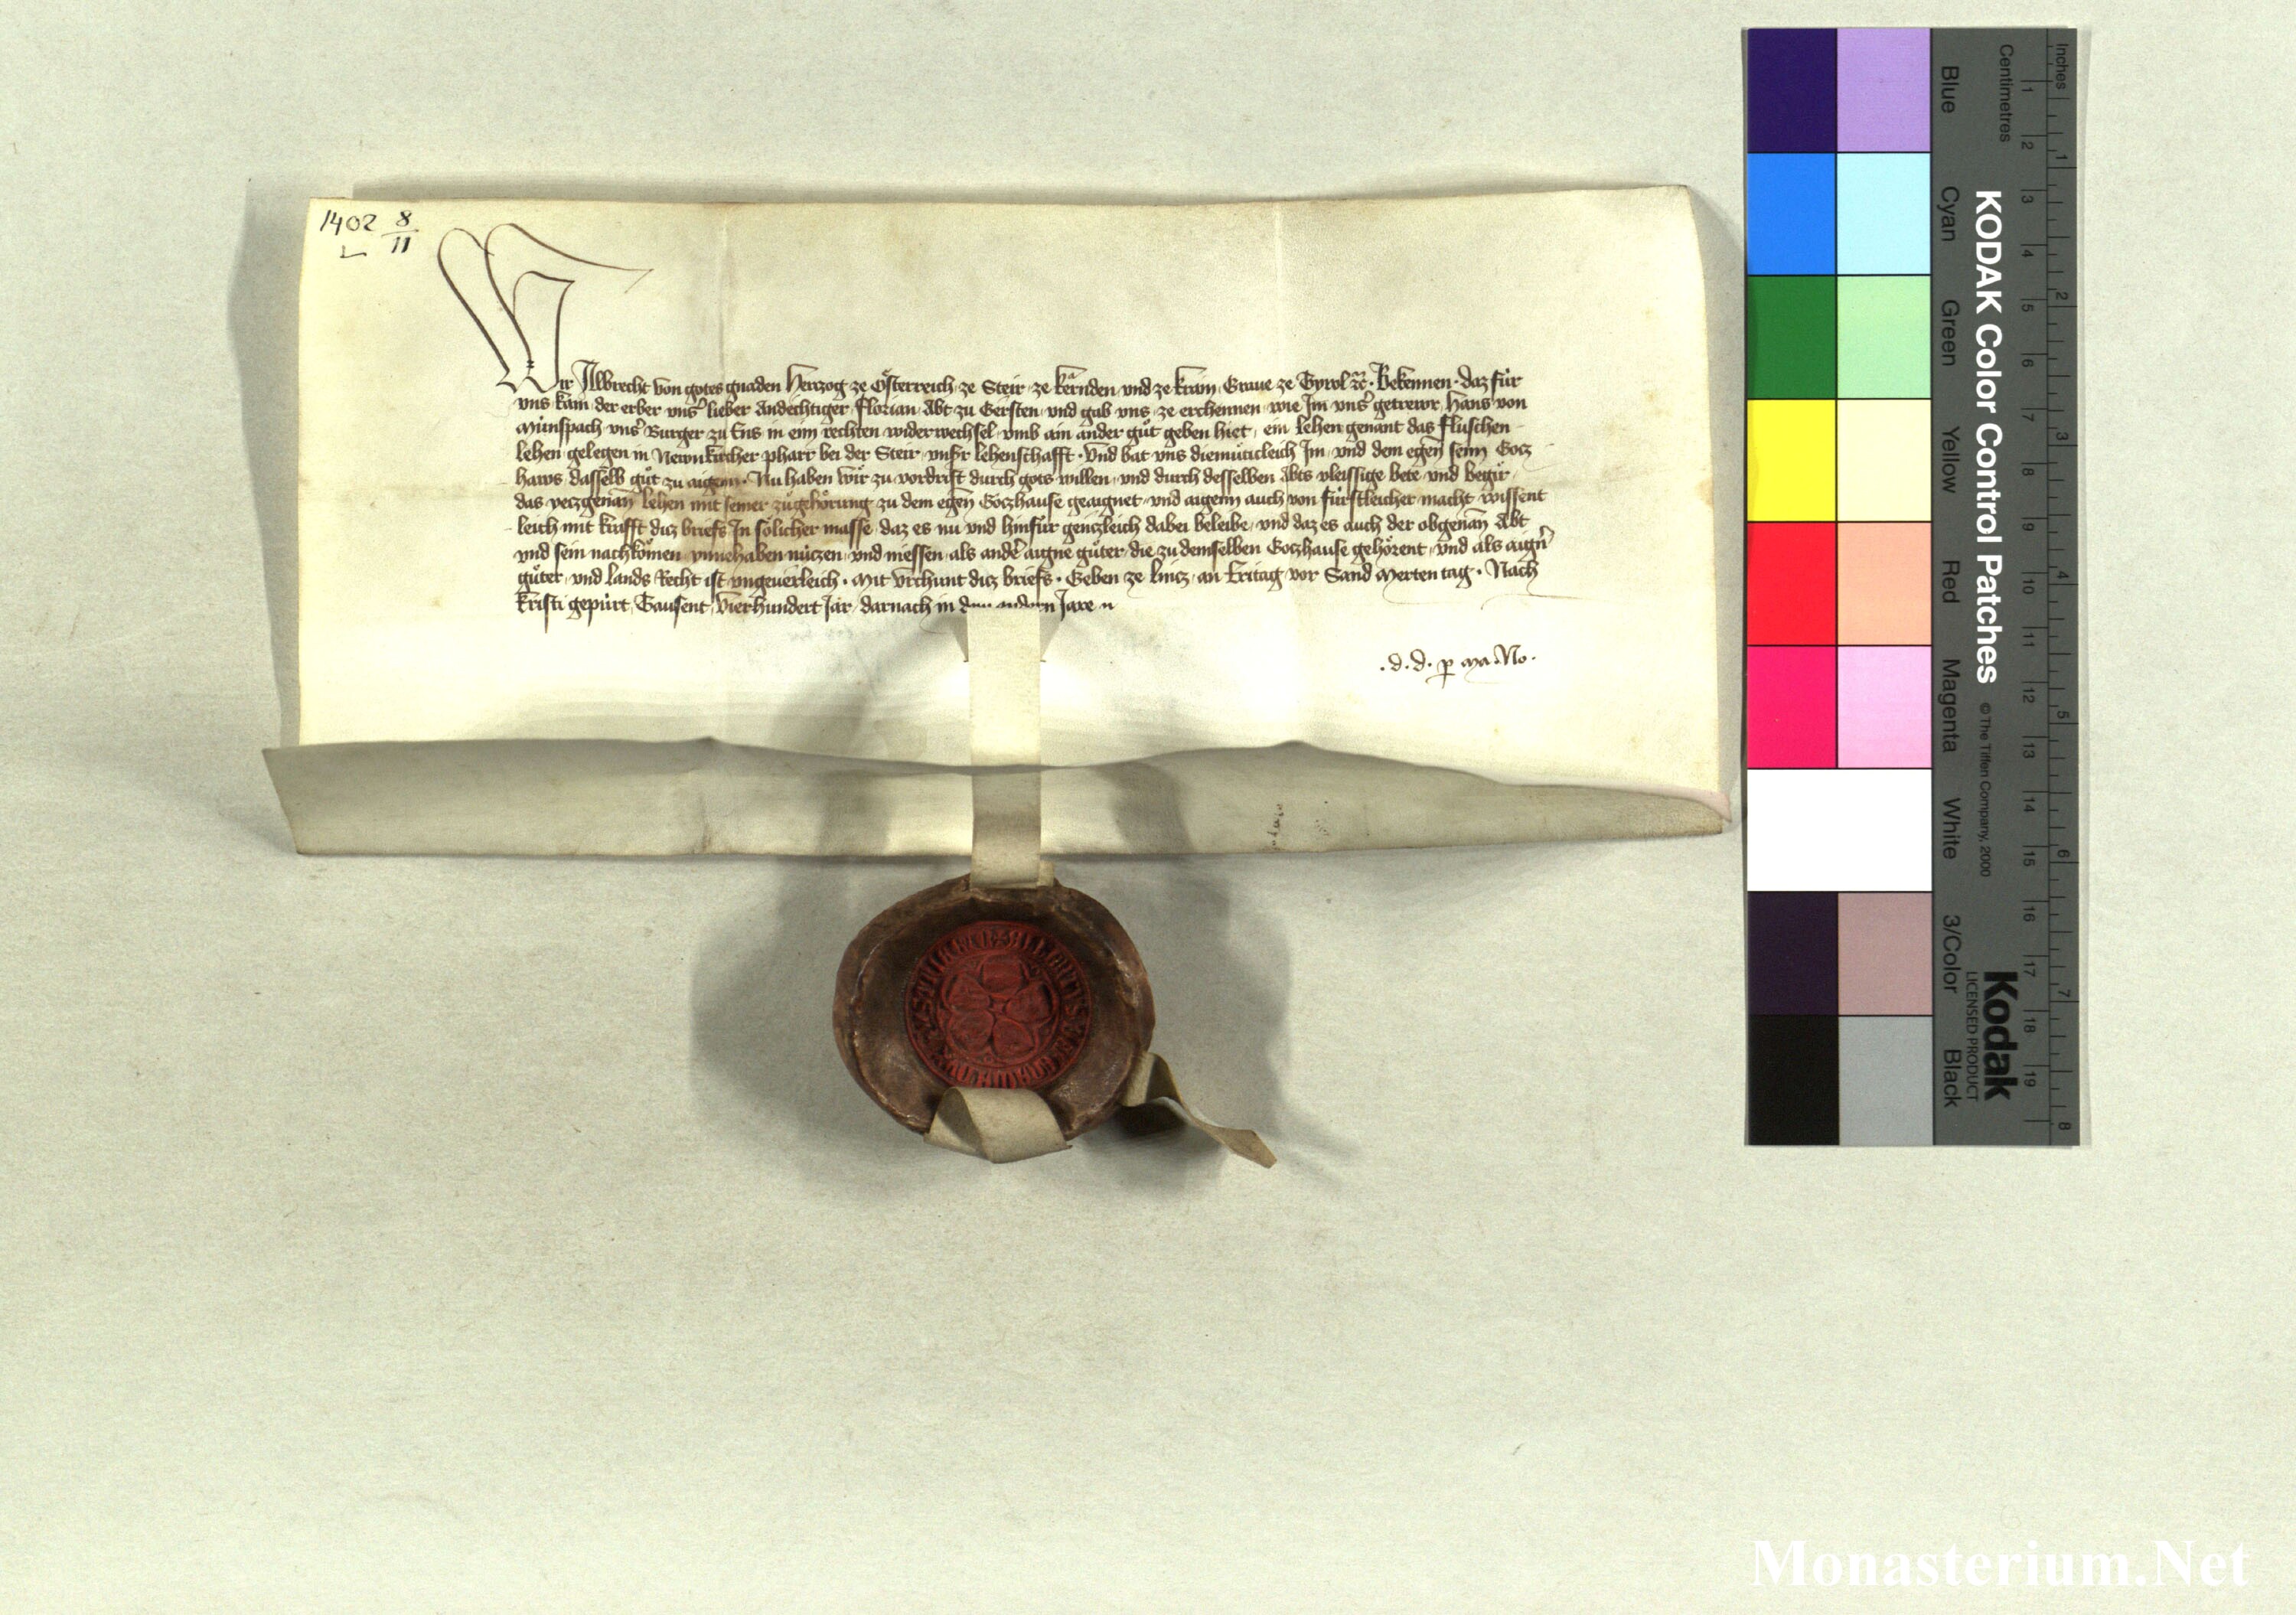 1402 8/11
L
Wir Albrecht von gotes gnaden Herczog ze Österreich ze Steir ze kernden und ze krain Graue ze Tyrol etc. Bekennen. daz für
uns kam der erber unser lieber andechtiger Florian Abt zu Gersten und gab uns ze erchennen wie Im unser getrewr Hans von
Münspach unser Burger zu Ens in eim rechten widerwechsel umb ain ander güt geben hiet, ein lehen genant das fluschen
lehen gelegen in Newnkircher pharr bei der Steir unsr lehenschafft. Und bat uns diemüticleich Im und dem egen seim Gocz
haws dasselb güt zu aigem. Nu haben wir zu vordrist durch gots willen und durch desselben Abts vleissige bete und begir,
das yeczgenan lehen mit seiner zügehörung zu dem egen Goczhause geaignet und aigenn auch von fürstleicher macht wissent
leich mit krafft dicz briefs In sölicher masse, daz es nu und hinfür genczleich dabei beleibe, und daz es auch der obgenan Abt
und sein nachkömen innehaben nüczen und niessen als ander augne güter die zu demselben Goczhause gehörent, und als augner
güter und lands Recht ist ungeuerleich. Mit Urchunt dicz briefs. Geben ze lincz an Eritag vor Sand Merten tag. Nach
kristi gepürt Tausent Vierhundert Jar darnach in dem andern Jare
.d.d. p ma. No.
KODAK Color Control Patches
© The Tiffen Company, 2000
Kodak
LICENSED PRODUCT
Blue Cyan Green Yellow Red Magenta White 3/Color Black
Inches 1 2 3 4 5 6 7 8
Centimetres 1 2 3 4 5 6 7 8 9 10 11 12 13 14 15 16 17 18 19
Monasterium.Net